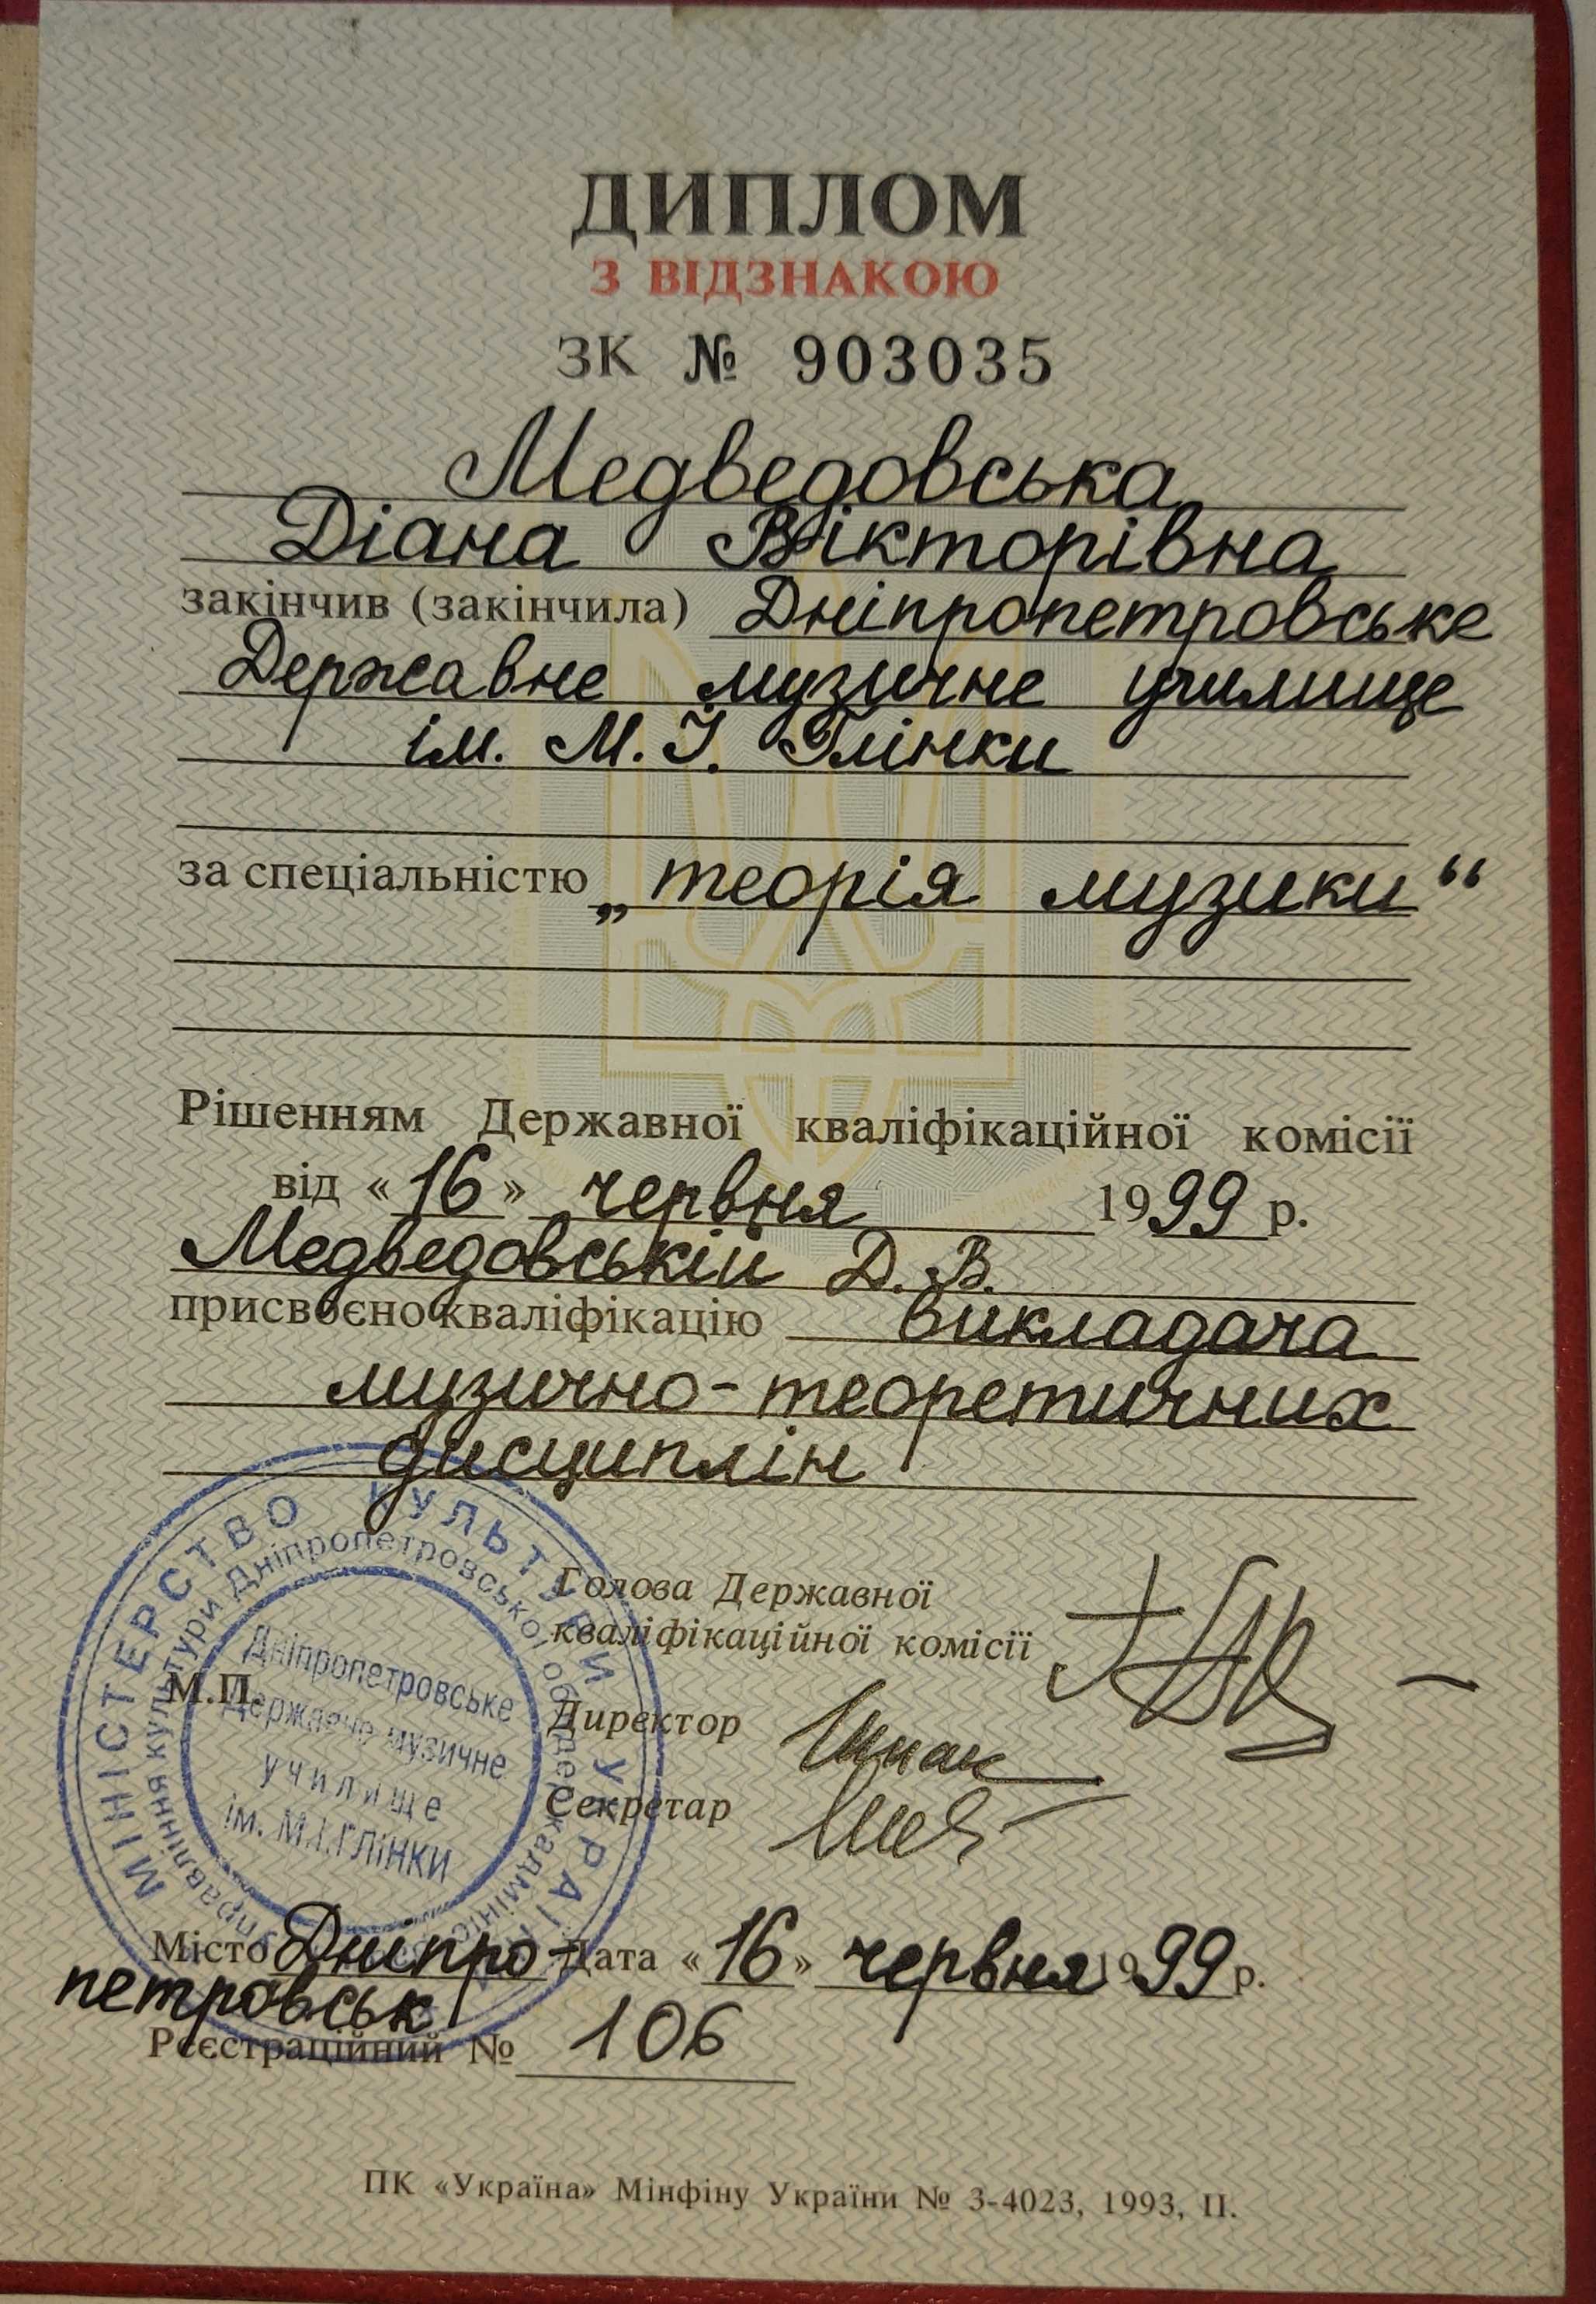 ДИПЛОМ
З ВІДЗНАКОЮ
ЗК № 903035
Медведовська
Діана Вікторівна
закінчив (закінчила) Дніпропетровське
Державне музичне училище
ім. М.І. Глінки
за спеціальністю „теорія музики“
Рішенням Державної кваліфікаційної комісії
від «16» червня 1999 р.
Медведовській Д. В.
присвоєно кваліфікацію викладача
музично-теоретичних
дисциплін
Голова Державної
кваліфікаційної комісії
М.П.
Директор
Секретар
МІНІСТЕРСТВО КУЛЬТУРИ УКРАЇНИ
управління культури Дніпропетровської облдержадміністрації
Дніпропетровське
Державне музичне
училище
ім. М.І.ГЛІНКИ
Місто Дніпро- Дата «16» червня 1999 р.
петровськ
Реєстраційний № 106
ПК «Україна» Мінфіну України № 3-4023, 1993, ІІ.